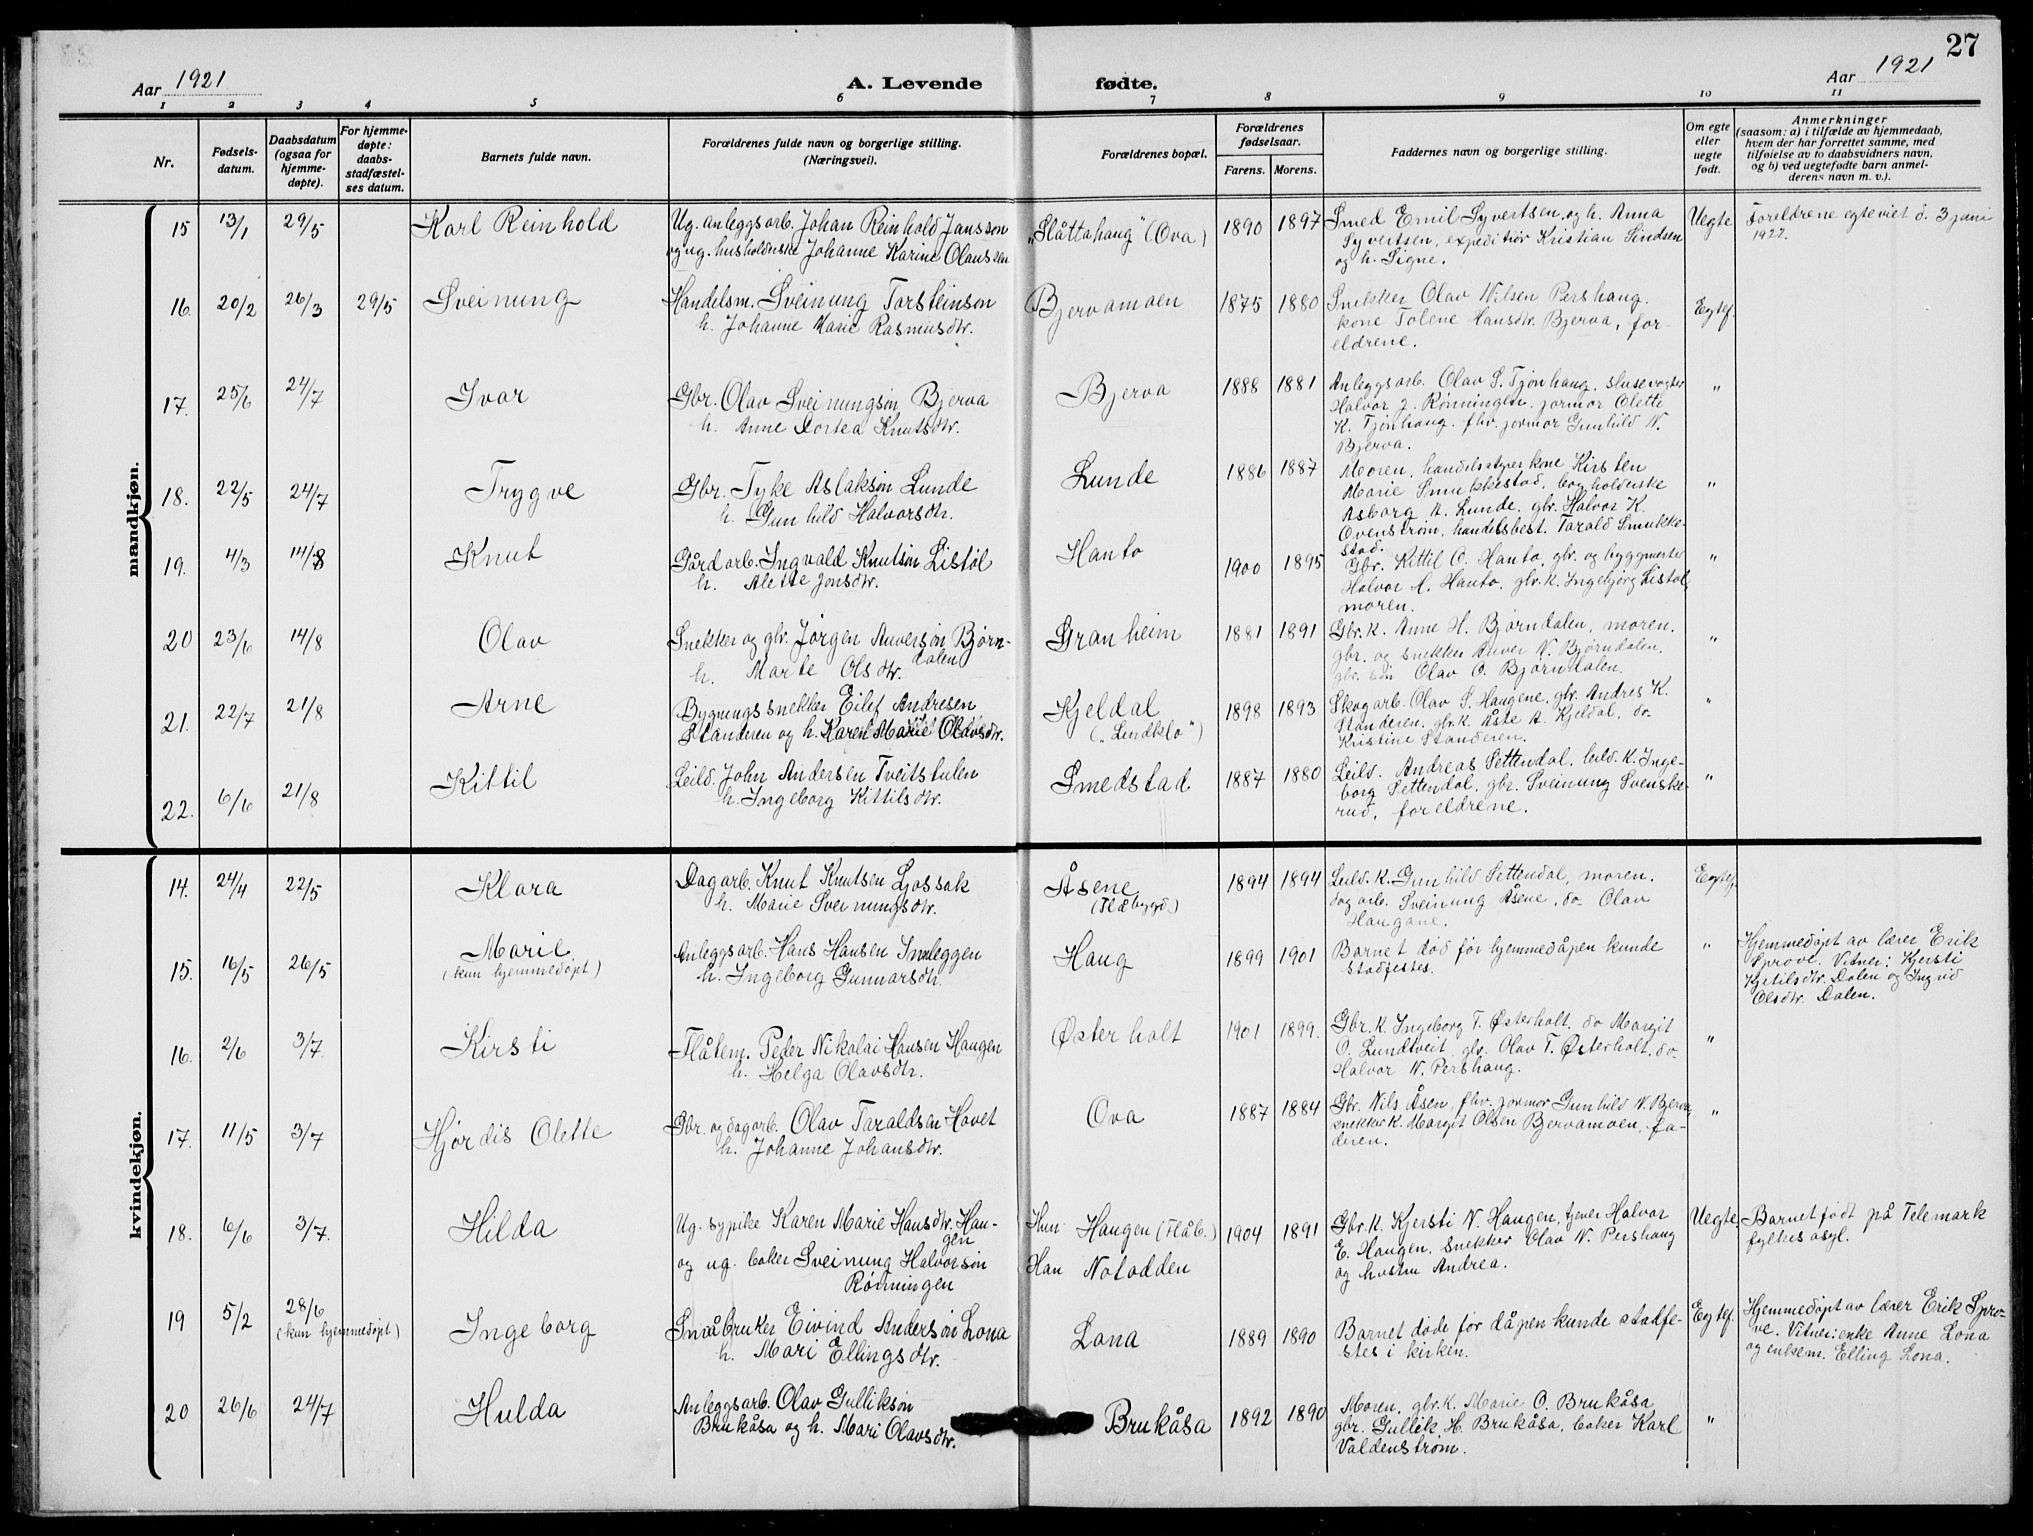 27
Aar 1921
A. Levende fødte.
Aar 1921
1 2 3 4 5 6 7 8 9 10 11
Nr.
Fødsels-
datum.
Daabsdatum
(ogsaa for
hjemme-
døpte).
For hjemme-
døpte:
daabs-
stadfæstel-
ses datum.
Barnets fulde navn.
Forældrenes fulde navn og borgerlige stilling.
(Næringsvei).
Forældrenes bopæl.
Forældrenes
fødselsaar.
Farens. Morens.
Faddernes navn og borgerlige stilling.
Om egte
eller
uegte
født.
Anmerkninger
(saasom: a) i tilfælde av hjemmedaab,
hvem der har forrettet samme, med
tilføielse av to daabsvidners navn,
og b) ved uegtefødte barn anmel-
derens navn m. v.).
mandkjøn.
15 13/1 29/5 Karl Reinhold
Ug. anleggsarb. Johan Reinhold Jansson
og ug. husholderske Johanne Karine Olaussen
„Slåttahaug" (Ova) 1890 1897
Smed Emil Syvertsen, og h. Anna
Syvertsen, expeditiør Kristian Sindsen
og h. Signe.
Uegte
Foreldrene egteviet d. 3 juni
1922.
16. 20/2 26/3 29/5 Sveinung
Handelsm. Sveinung Torsteinson
h. Johanne Marie Rasmusdtr.
Bjervamoen 1875 1880
Snekker Olav Nilsen Pershaug.
kone Tolene Hansdtr. Bjerva, for-
eldrene.
Egtef.
17. 25/6 24/7 Ivar
Gbr. Olav Sveinungson Bjerva
h. Anne Dortea Knutsdtr.
Bjerva 1888 1881
Anleggsarb. Olav S. Tjønhaug, slusevogter
Halvor J. Rønningen, jormor Olette
K. Tjønhaug. fhv. jormor Gunhild N.
Bjerva.
"
18. 22/5 24/7 Trygve
Gbr. Tyke Aslakson Lunde
h. Gunhild Halvorsdtr.
Lunde 1886 1887
Moren, handelsstyrer kone Kirsten
Marie Smukkestad, bogholderske
Asborg A. Lunde, gbr. Halvor K.
Ovenstrøm, handelsbest. Tarald Smukke-
stad.
"
19. 4/3 14/8 Knut
Gårdarb. Ingvald Knutson Listøl
h. Alette Jonsdtr.
Hanto 1900 1895
Gbr. Kittil O. Hanto, gbr. og byggmester
Halvor A. Hanto, gbr. k. Ingebjørg Listøl,
moren.
"
20 23/6 14/8 Olav
Snekker og gbr. Jørgen Anverson Bjørn-
dalen
h. Marte Olsdtr.
Granheim 1881 1891
Gbr. k. Anne H. Bjørndalen, moren.
gbr. og snekker Anver N. Bjørndalen,
gbr. søn Olav O. Bjørndalen.
"
21. 22/7 21/8 Arne
Bygningssnekker Eilef Andresen
Standeren og h. Karen Marie Olavsdtr.
Kjeldal
(„Lindklo") 1898 1893
Skogarb. Olav S. Haugene, gbr. Andres K.
Standeren, gbr. k. Åste A. Kjeldal, do
Kristine Standeren.
"
22. 6/6 21/8 Kittil
Leild. John Andersen Tveitstulen
h. Ingeborg Kittilsdtr.
Smedstad 1887 1880
Leild. Andreas Settendal, leild. k. Inge-
borg Settendal, gbr. Sveinung Svenske-
rud, foreldrene.
"
kvindekjøn.
14. 24/4 22/5 Klara
Dagarb. Knut Knutsen Gjossak
h. Marie Sveinungsdtr.
Åsene
(Flåbygd.) 1894 1894
Leild. k. Gunhild Settendal, moren.
dagarb. Sveinung Åsene, do Olav
Haugane.
Egtef.
15. 16/5 26/5 Marie
(kun hjemmedøpt)
Anleggsarb. Hans Hansen Innleggen
h. Ingeborg Gunnarsdtr.
Haug 1899 1901
Barnet død før hjemmedåpen kunde
stadfestes.
"
Hjemmedøpt av lærer Erik
Sprove. Vitner: Kjersti
Kjetilsdtr. Dalen og Ingrid
Olsdtr. Dalen.
16. 2/6 3/7. Kirsti
Flåtem. Peder Nikolai Hansen Haugen
h. Helga Olavsdtr.
Østerholt 1901 1899.
Gbr. k. Ingeborg T. Østerholt, do Margit
O. Lundtveit, gbr. Olav T. Østerholt, do
Halvor N. Pershaug.
"
17. 11/5 3/7 Hjørdis Olette
Gbr. og dagarb. Olav Taraldsen Hovet
h. Johanne Johansdtr.
Ova 1887 1884
Gbr. Nils Åsen, fhv. jormor Gunhild N. Bjerva,
snekker k. Margit Olsen Bjervamoen, fa-
deren.
"
18. 6/6 3/7. Hilda
Ug. sypike Karen Marie Hansdtr. Hau-
gen
og ug. baker Sveinung Halvorson
Rønningen
Hun Haugen (Flåb.)
Han Notodden
1904 1891
Gbr. k. Kjersti N. Haugen, tjener Halvor
E. Haugen, snekker Olav N. Pershaug
og hustru Andrea.
Uegte.
Barnet født på Telemark
fylkes asyl.
19 5/2 28/6
(kun hjemmedøpt)
Ingeborg
Småbruker Eivind Anderson Lona
h. Mari Ellingsdtr.
Lona 1889 1890
Barnet døde før dåpen kunde stadfe-
stes i kirken.
Egtef.
Hjemmedøpt av lærer Erik Spro-
ve. Vitner: enke Anne Lona
og enkem. Elling Lona.
20 26/6 24/7 Hulda
Anleggsarb. Olav Gullikson
Brukåsa og h. Mari Olavsdtr.
Brukåsa 1892 1890
Moren, gbr. k. Marie O. Brukåsa
gbr. Gullik H. Brukåsa, baker Karl
Valdenstrøm.
"